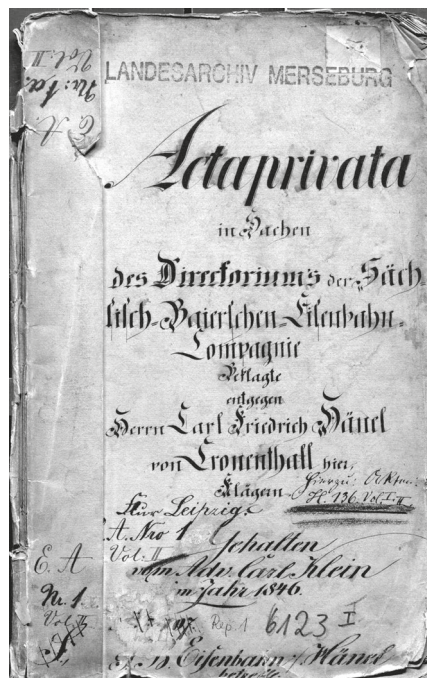 Vol. II
Nr: 1a
E. A.
LANDESARCHIV MERSEBURG
Acta privata
in Sachen
des Directoriums der Säch-
sisch-Baierschen-Eisenbahn-
Compagnie
Beklagte
entgegen
Herrn Carl Friedrich Hänel
von Cronenthall hier,
Klägern
hierzu: Akten
H. 136. Vol. I. II
Flur Leipzig.
A. Nro 1
Vol. II
Gehalten
vom Adv. Carl Klein
im Jahr 1846.
E. A
Nr. 1.
Rep 1
6123 I
Eisenbahn / Hänel